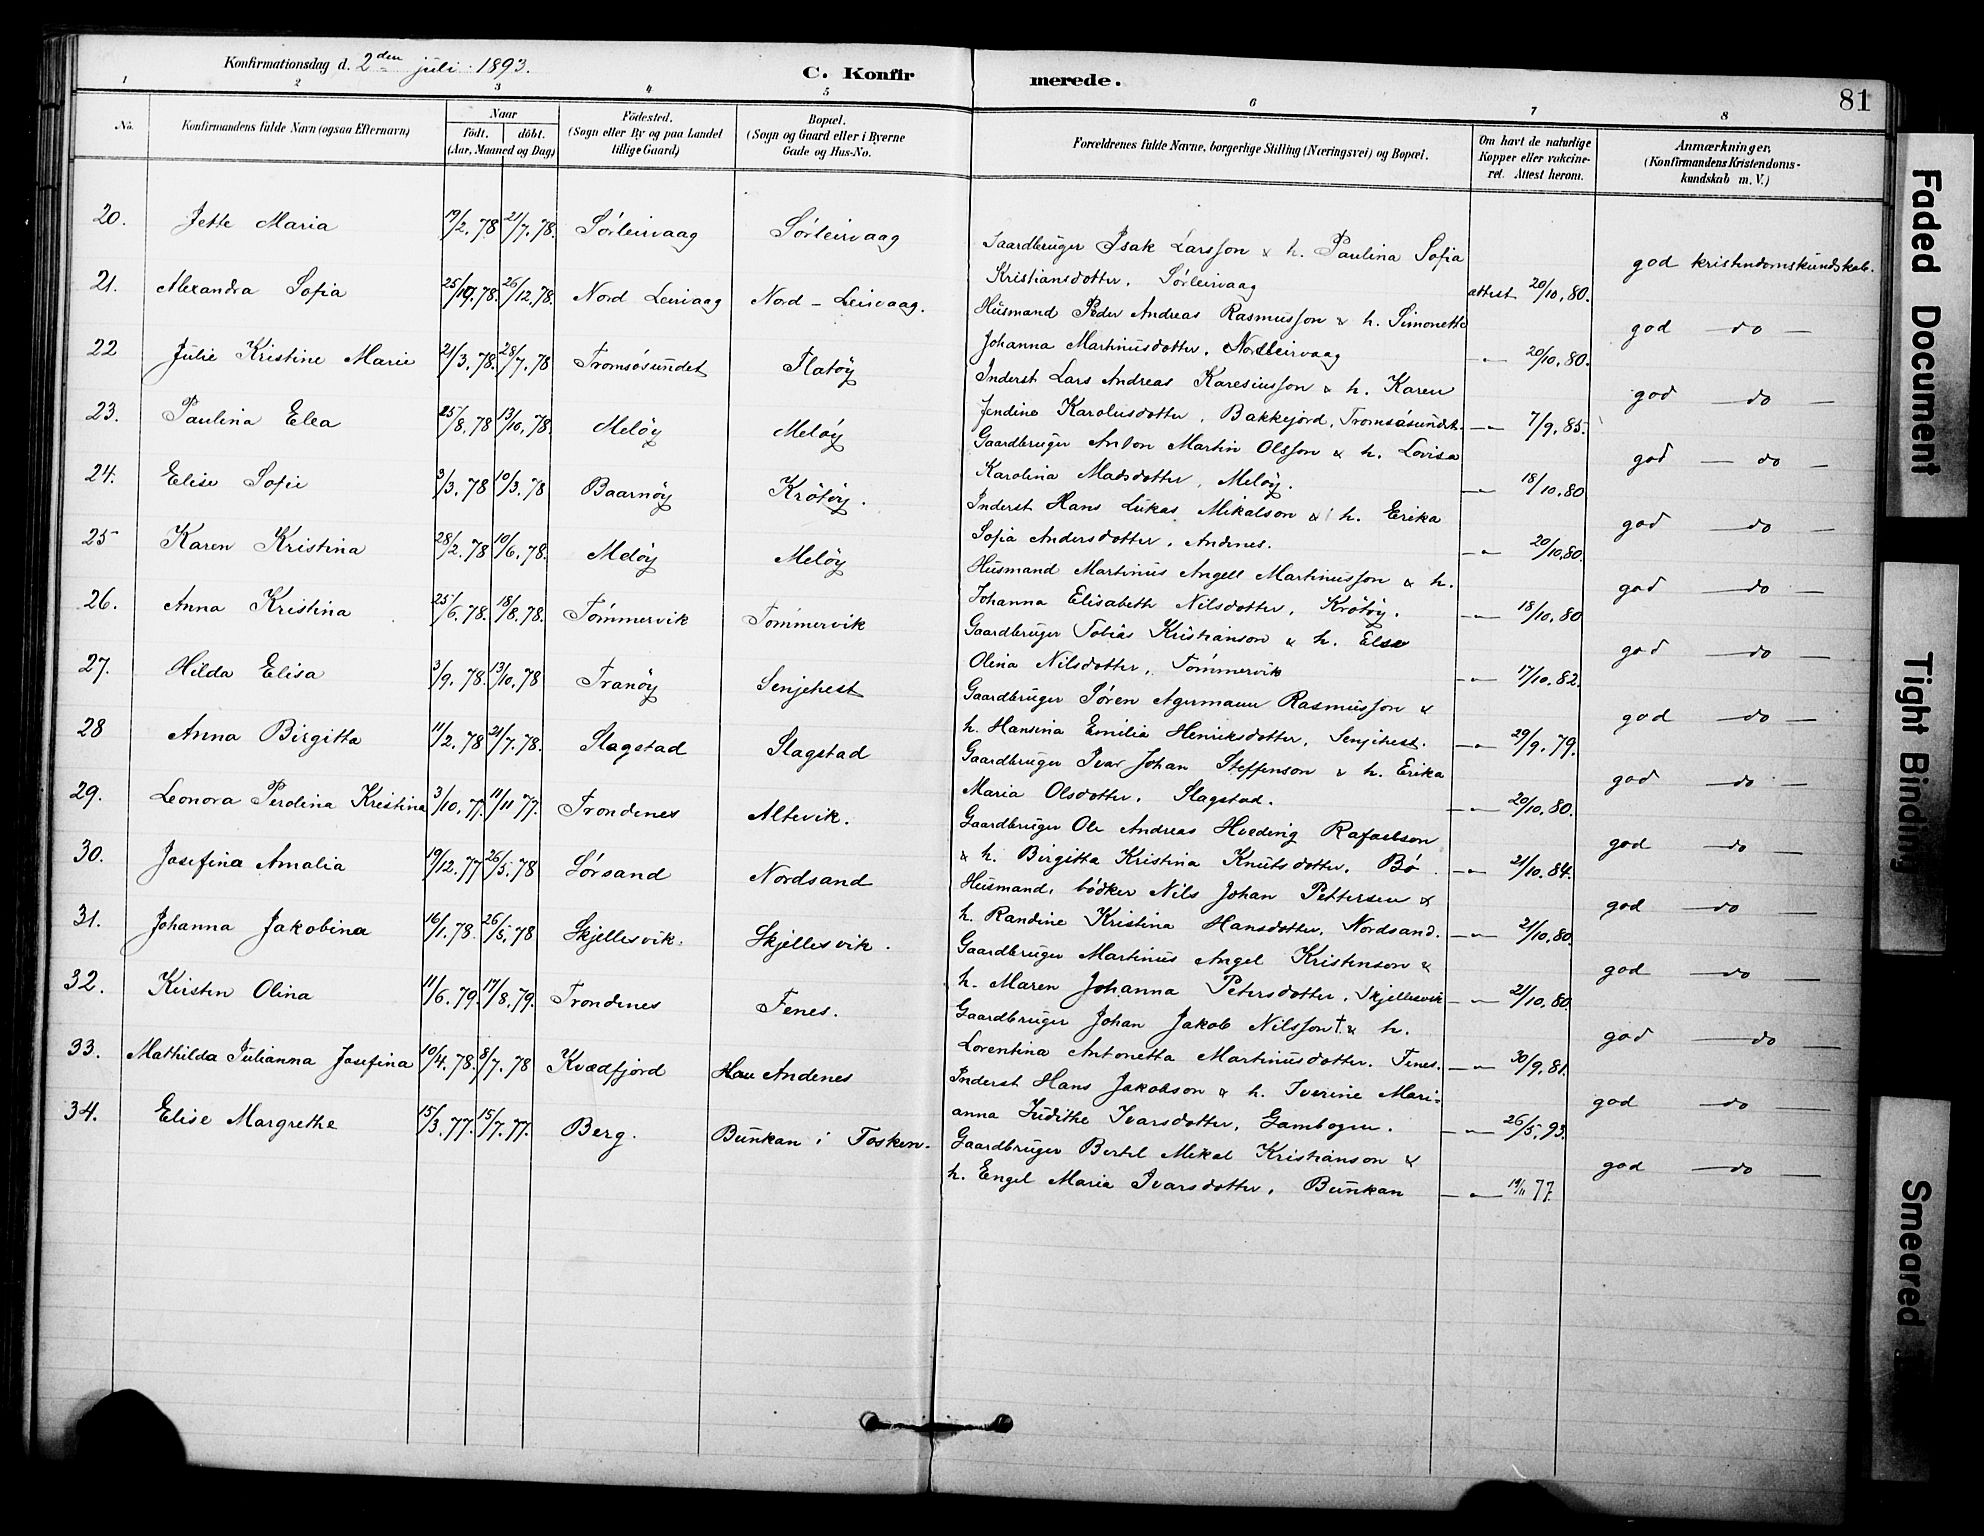 Konfirmationsdag d. 2den juli 1893.
C. Konfirmerede.
81
1 2 3 4 5 6 7 8
No.
Konfirmandens fulde Navn (ogsaa Efternavn)
Naar
födt. döbt.
(Aar, Maaned og Dag)
Födested.
(Sogn eller By og paa Landet
tillige Gaard)
Bopæl.
(Sogn og Gaard eller i Byerne
Gade og Hus-No.
Forældrenes fulde Navne, borgerlige Stilling (Næringsvei) og Bopæl.
Om havt de naturlige
Kopper eller vakcine-
ret. Attest herom.
Anmærkninger,
(Konfirmandens Kristendoms-
kundskab m. V.)
20. Jette Maria 19/2.78 21/7.78. Sørleirvaag Sørleirvaag
Gaardbruger Isak Larsson & h. Paulina Sofia
Kristiansdotter. Sørleirvaag attest 20/10.80. god kristendomskundskab.
21. Alexandra Sofia 25/10.78. 26/12.78. Nord Leirvaag Nord-Leirvaag.
Husmand Peder Andreas Rasmusson & h. Simonette
Johanna Martinusdotter. Nordleirvaag — " — 20/10.80. god — do —
22 Julie Kristine Marie 21/3.78. 28/7.78 Tromsøsundet Flatøy
Inderst Lars Andreas Karesiusson & h. Karen
Jendine Karolusdotter, Bakkejord, Tromsøsundet. — " — 7/9.85. god — do —
23. Paulina Elea 25/8.78 13/10.78. Meløy Meløy
Gaardbruger Anton Martin Olsson & h. Lovisa
Karolina Madsdotter, Meløy. — " — 18/10.80 god — do —
24. Elise Sofie 3/3.78 10/3.78 Baarnøy Krøtøy.
Inderst Hans Lukas Mikalson & h. Erika
Sofia Andersdotter. Andenes. — " — 20/10.80. god — do —
25 Karen Kristina 28/2.78 10/6.78. Meløy Meløy
Husmand Martinus Angell Martinusson & h.
Johanna Elisabeth Nilsdotter, Krøtøy. — " — 18/10.80 god — do —
26. Anna Kristina 25/6.78. 18/8.78. Tømmervik Tømmervik
Gaardbruger Tobias Kristianson & h. Else
Olina Nilsdotter, Tømmervik — " — 17/10.82. god — do —
27. Hilda Elisa 3/9.78. 13/10.78 Tranøy Senjehest
Gaardbruger Søren Agermann Rasmusson &
h. Hansina Emilia Henriksdotter, Senjehest. — " — 29/9.79. god — do —
28 Anna Birgitta 11/2.78 21/7.78. Slagstad Slagstad
Gaardbruger Ivar Johan Steffenson & h. Erika
Maria Olsdotter. Slagstad. — " — 20/10.80. god — do —
29. Leonora Perdina Kristina 3/10.77. 11/11 77. Trondenes Altevik.
Gaardbruger Ole Andreas Hveding Rafaelson
& h. Birgitta Kristina Knutsdotter. Bø. — " — 21/10.84. god — do —
30. Josefina Amalia 19/12.77 26/5.78 Sørsand Nordsand
Husmand, bødker Nils Johan Pettersen &
h. Randine Kristina Hansdotter. Nordsand. — " — 21/10.80. god — do —
31. Johanna Jakobina 16/1.78. 26/5.78 Skjellesvik. Skjellesvik.
Gaardbruger Martinus Angel Kristenson &
h. Maren Johanna Petersdotter. Skjellesvik — " — 21/10.80. god — do —
32. Kirsten Olina 11/6.79. 17/8.79. Trondenes Fenes.
Gaardbruger Johan Jakob Nilsson † & h.
Lorentina Antonetta Martinusdotter. Fenes. — " — 30/9.81. god — do —
33. Mathilda Julianna Josefina 10/4.78. 8/7.78 Kvædfjord Andenes
Inderst Hans Jakobson & h. Iverine Mari-
anna Judithe Ivarsdotter, Gambogen. — " — 26/5.93. god — do —
34. Elise Margrethe 15/3.77. 15/7.77. Berg. Bunkan i Tosken.
Gaardbruger Bertel Mikal Kristianson &
h. Engel Maria Ivarsdotter, Bunkan — " — 19/11 77. god — do —
Faded Document
Tight Binding
Smeared